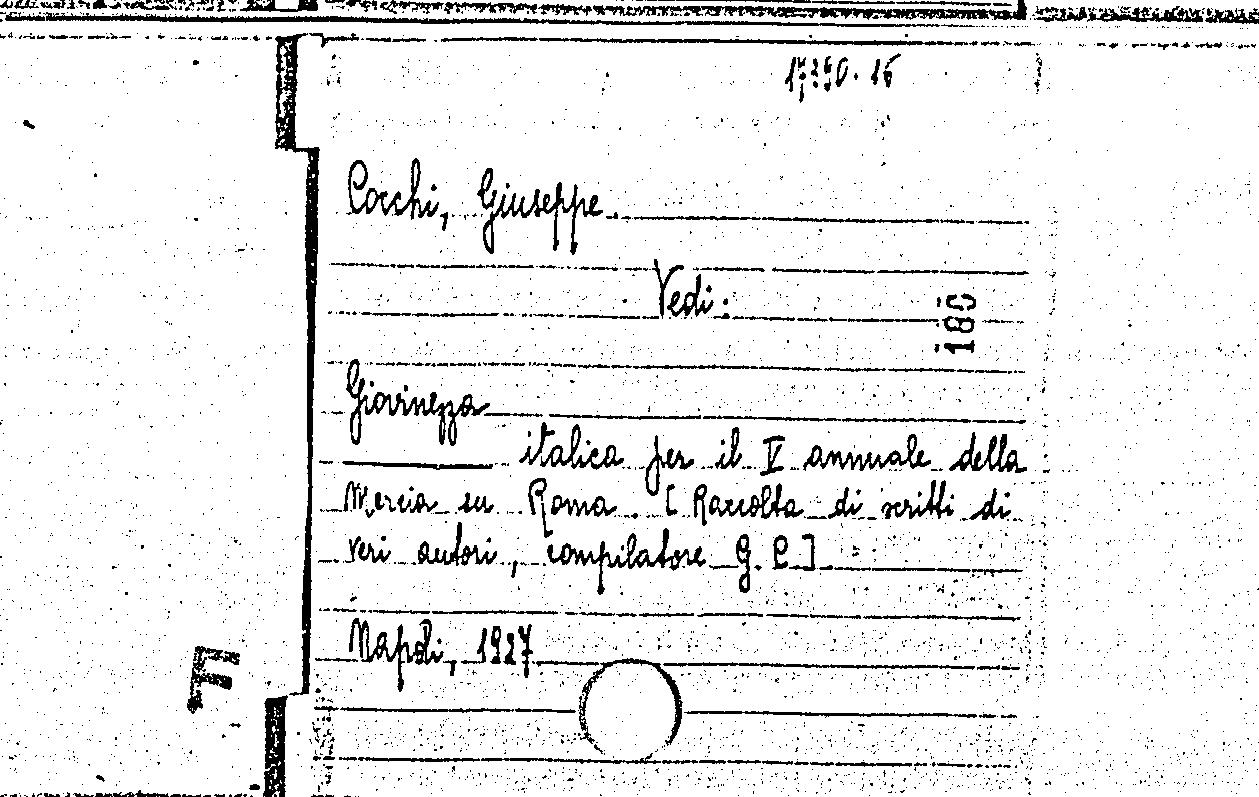 Cocchi, Giuseppe.
Vedi:
180
Giovinezza
italica per il V annuale della
Mercia su Roma. [Raccolta di scritti di
veri autori, compilatore G. C.]
Napoli, 1927
F